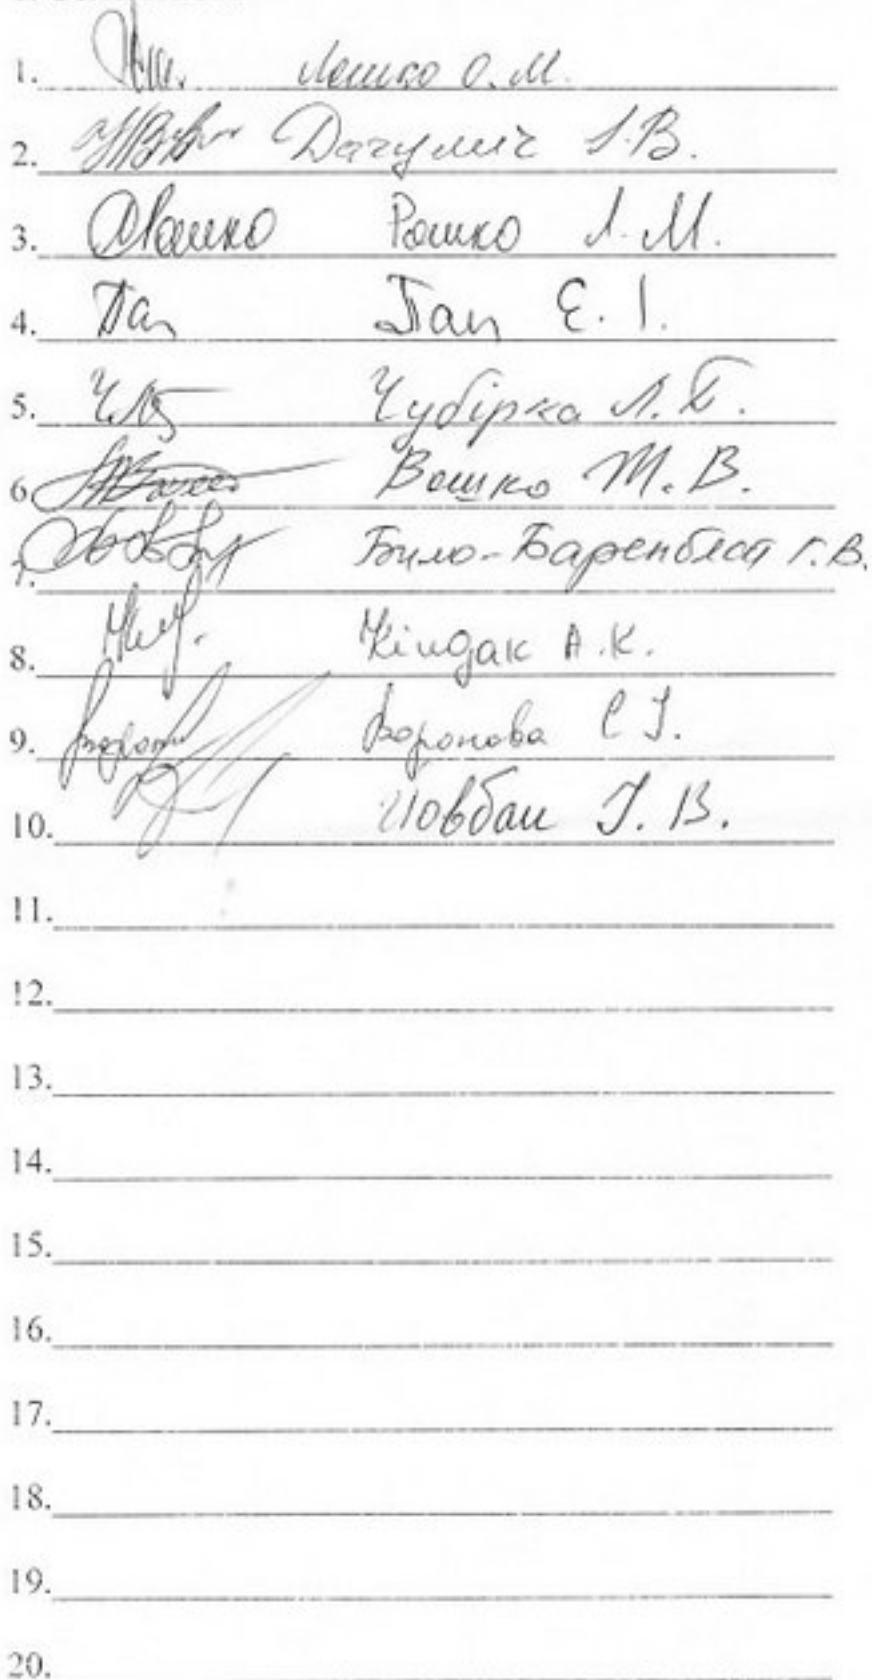 1. Лешко О.М.
2. Дагулич І.В.
3. Рошко Рошко Л.М.
4. Пап Пап Е.І.
5. Чубірка Л.П.
6. Вошко М.В.
7. Било-Баренблат Г.В.
8. Кіндак А.К.
9. Воронова Є.І.
10. Йовбак І.В.
11.
12.
13.
14.
15.
16.
17.
18.
19.
20.